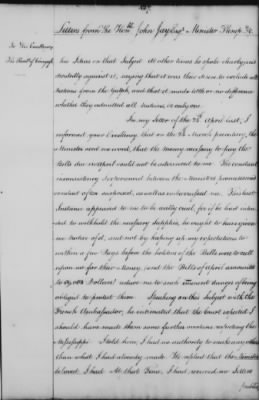 Letters from The Honble John Jay Esqr Minister Plenipo &c
To His Excellency
The Presidt of Congress
his Ideas on that Subject. At other times he spoke
against it, saying that it was their desire to exclude all
nations from the Gulph, and that it made little or no difference
whether they admitted all nations, or only one.
In my letter of the 28th April last, I
informed your Excellency that on the of March preceding, the
Minister sent me word, that the Money necessary to pay the
Bills due in April could not be advanced to me. The evident
inconsistency between the Minister's promises and
conduct
Instance appeared to me to be really cruel, for if he had intend
ed to withhold the necessary Supplies, he ought to have given
me notice of it, and not by keeping up my expectations to
within a few Days before the holders of the Bills were to call
upon me for their Money, (and the Bills of April amounted
to Dollars) reduce me to such Danger of being
obliged to protest them. Speaking on this Subject with the
French Ambassador, he intimated that the Court expected I
should have made them some further overtures respecting the
Mississippi. I told him, I had no authority to make any other
than what I had already made. He replied that the Minister
believed I had. At that Time, I had received no Letters